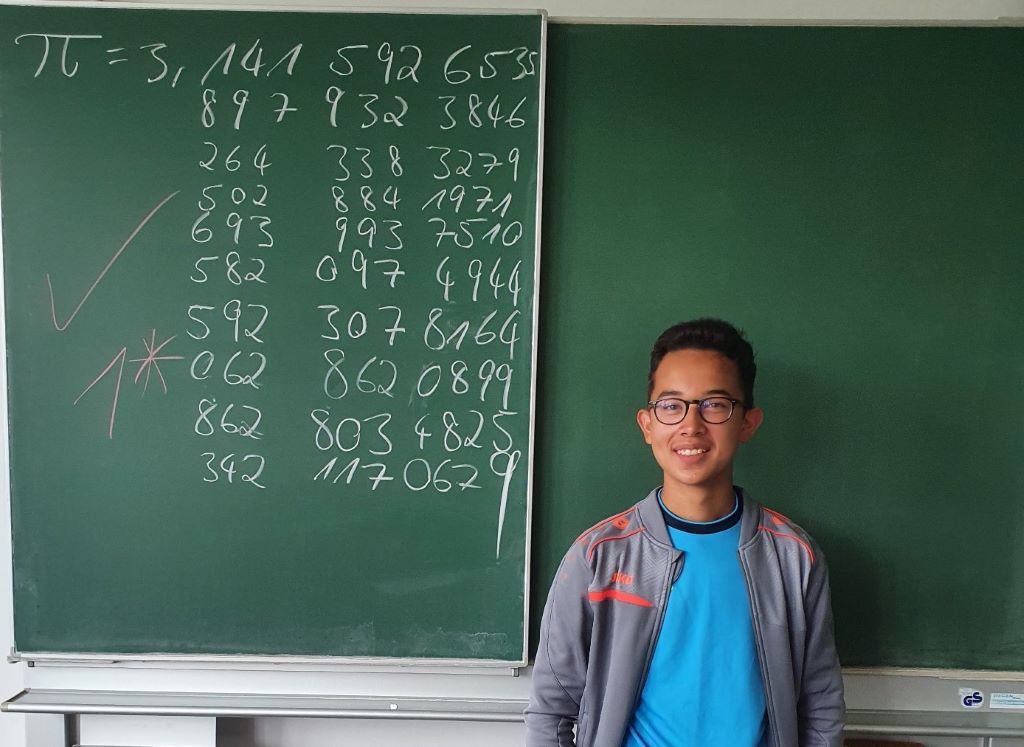 π = 3, 141 592 6535
897 932 3846
264 338 3279
502 884 1971
693 993 7510
582 097 4944
592 307 8164
062 862 0899
862 803 4825
342 117 0679
1*
JAKO
GS